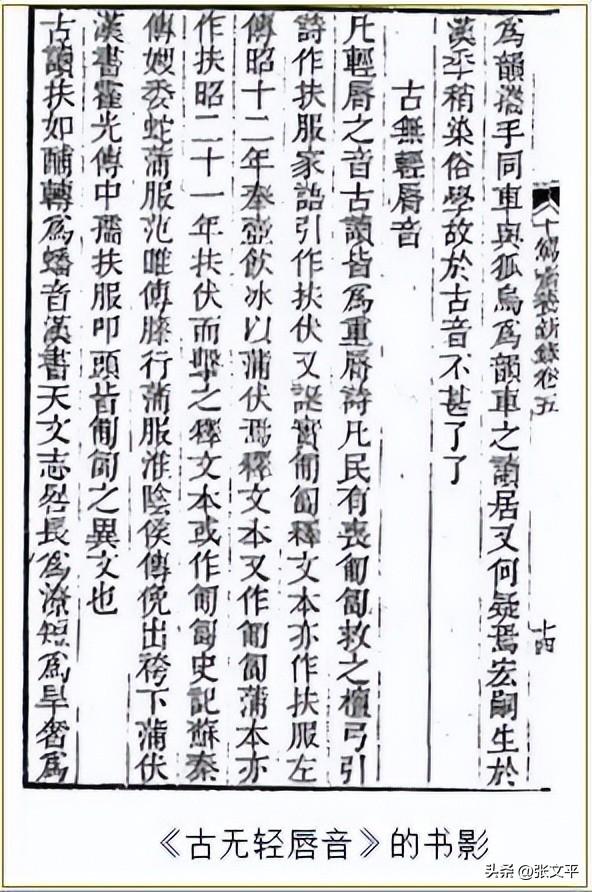 爲韻攜手同車與狐烏爲韻車之讀居又何疑焉宏嗣生於
漢季稍染俗學故於古音不甚了了
古無輕脣音
凡輕脣之音古讀皆爲重脣詩凡民有喪匍匐救之檀弓引
詩作扶服家語引作扶伏又誕實匍匐釋文本亦作扶服左
傳昭十二年奉壺飲冰以蒲伏焉釋文本又作匍匐蒲本亦
作扶昭二十一年扶伏而擊之釋文本或作匍匐史記蘇秦
傳嫂委蛇蒲服范雎傳膝行蒲服淮陰侯傳俛出袴下蒲伏
漢書霍光傳中孺扶服叩頭皆匍匐之異文也
古讀扶如酺轉爲蟠音漢書天文志晷長爲潦短爲旱奢爲
十駕齋養新錄卷五
十四
《古无轻唇音》的书影
头条 @张文平